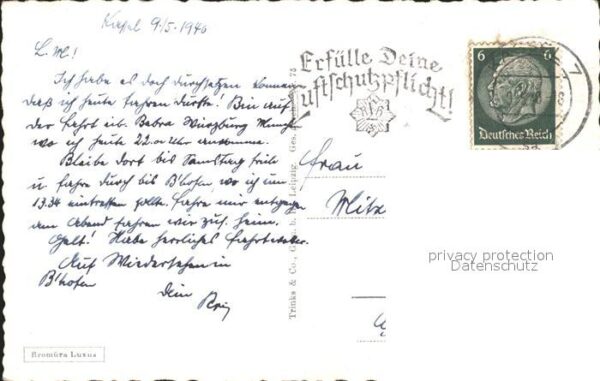 Kassel 9/5-1940
L. M.!
Ich habe es doch durchsetzen können
daß ich heute fahren durfte! Bin auf
der Fahrt üb. Bebra Würzburg Münch
wo ich heute 22.01 Uhr ankomme.
Bleibe dort bis Samstag früh
u fahre durch bis B'hofen wo ich um
13.34 eintreffen sollte. Fahre mir entgegen
dem Abend fahren wir zus. heim.
Gelt! Habe herrliches Fahrtwetter.
Auf Wiedersehen in
B'hofen
Dein
Bromüra Luxus
Trinks & Co., G. m. b. H., Leipzig. Ges. 75
Erfülle Deine
Luftschutzpflicht!
6 6
Deutsches Reich
7
Frau
Mitz
privacy protection
Datenschutz